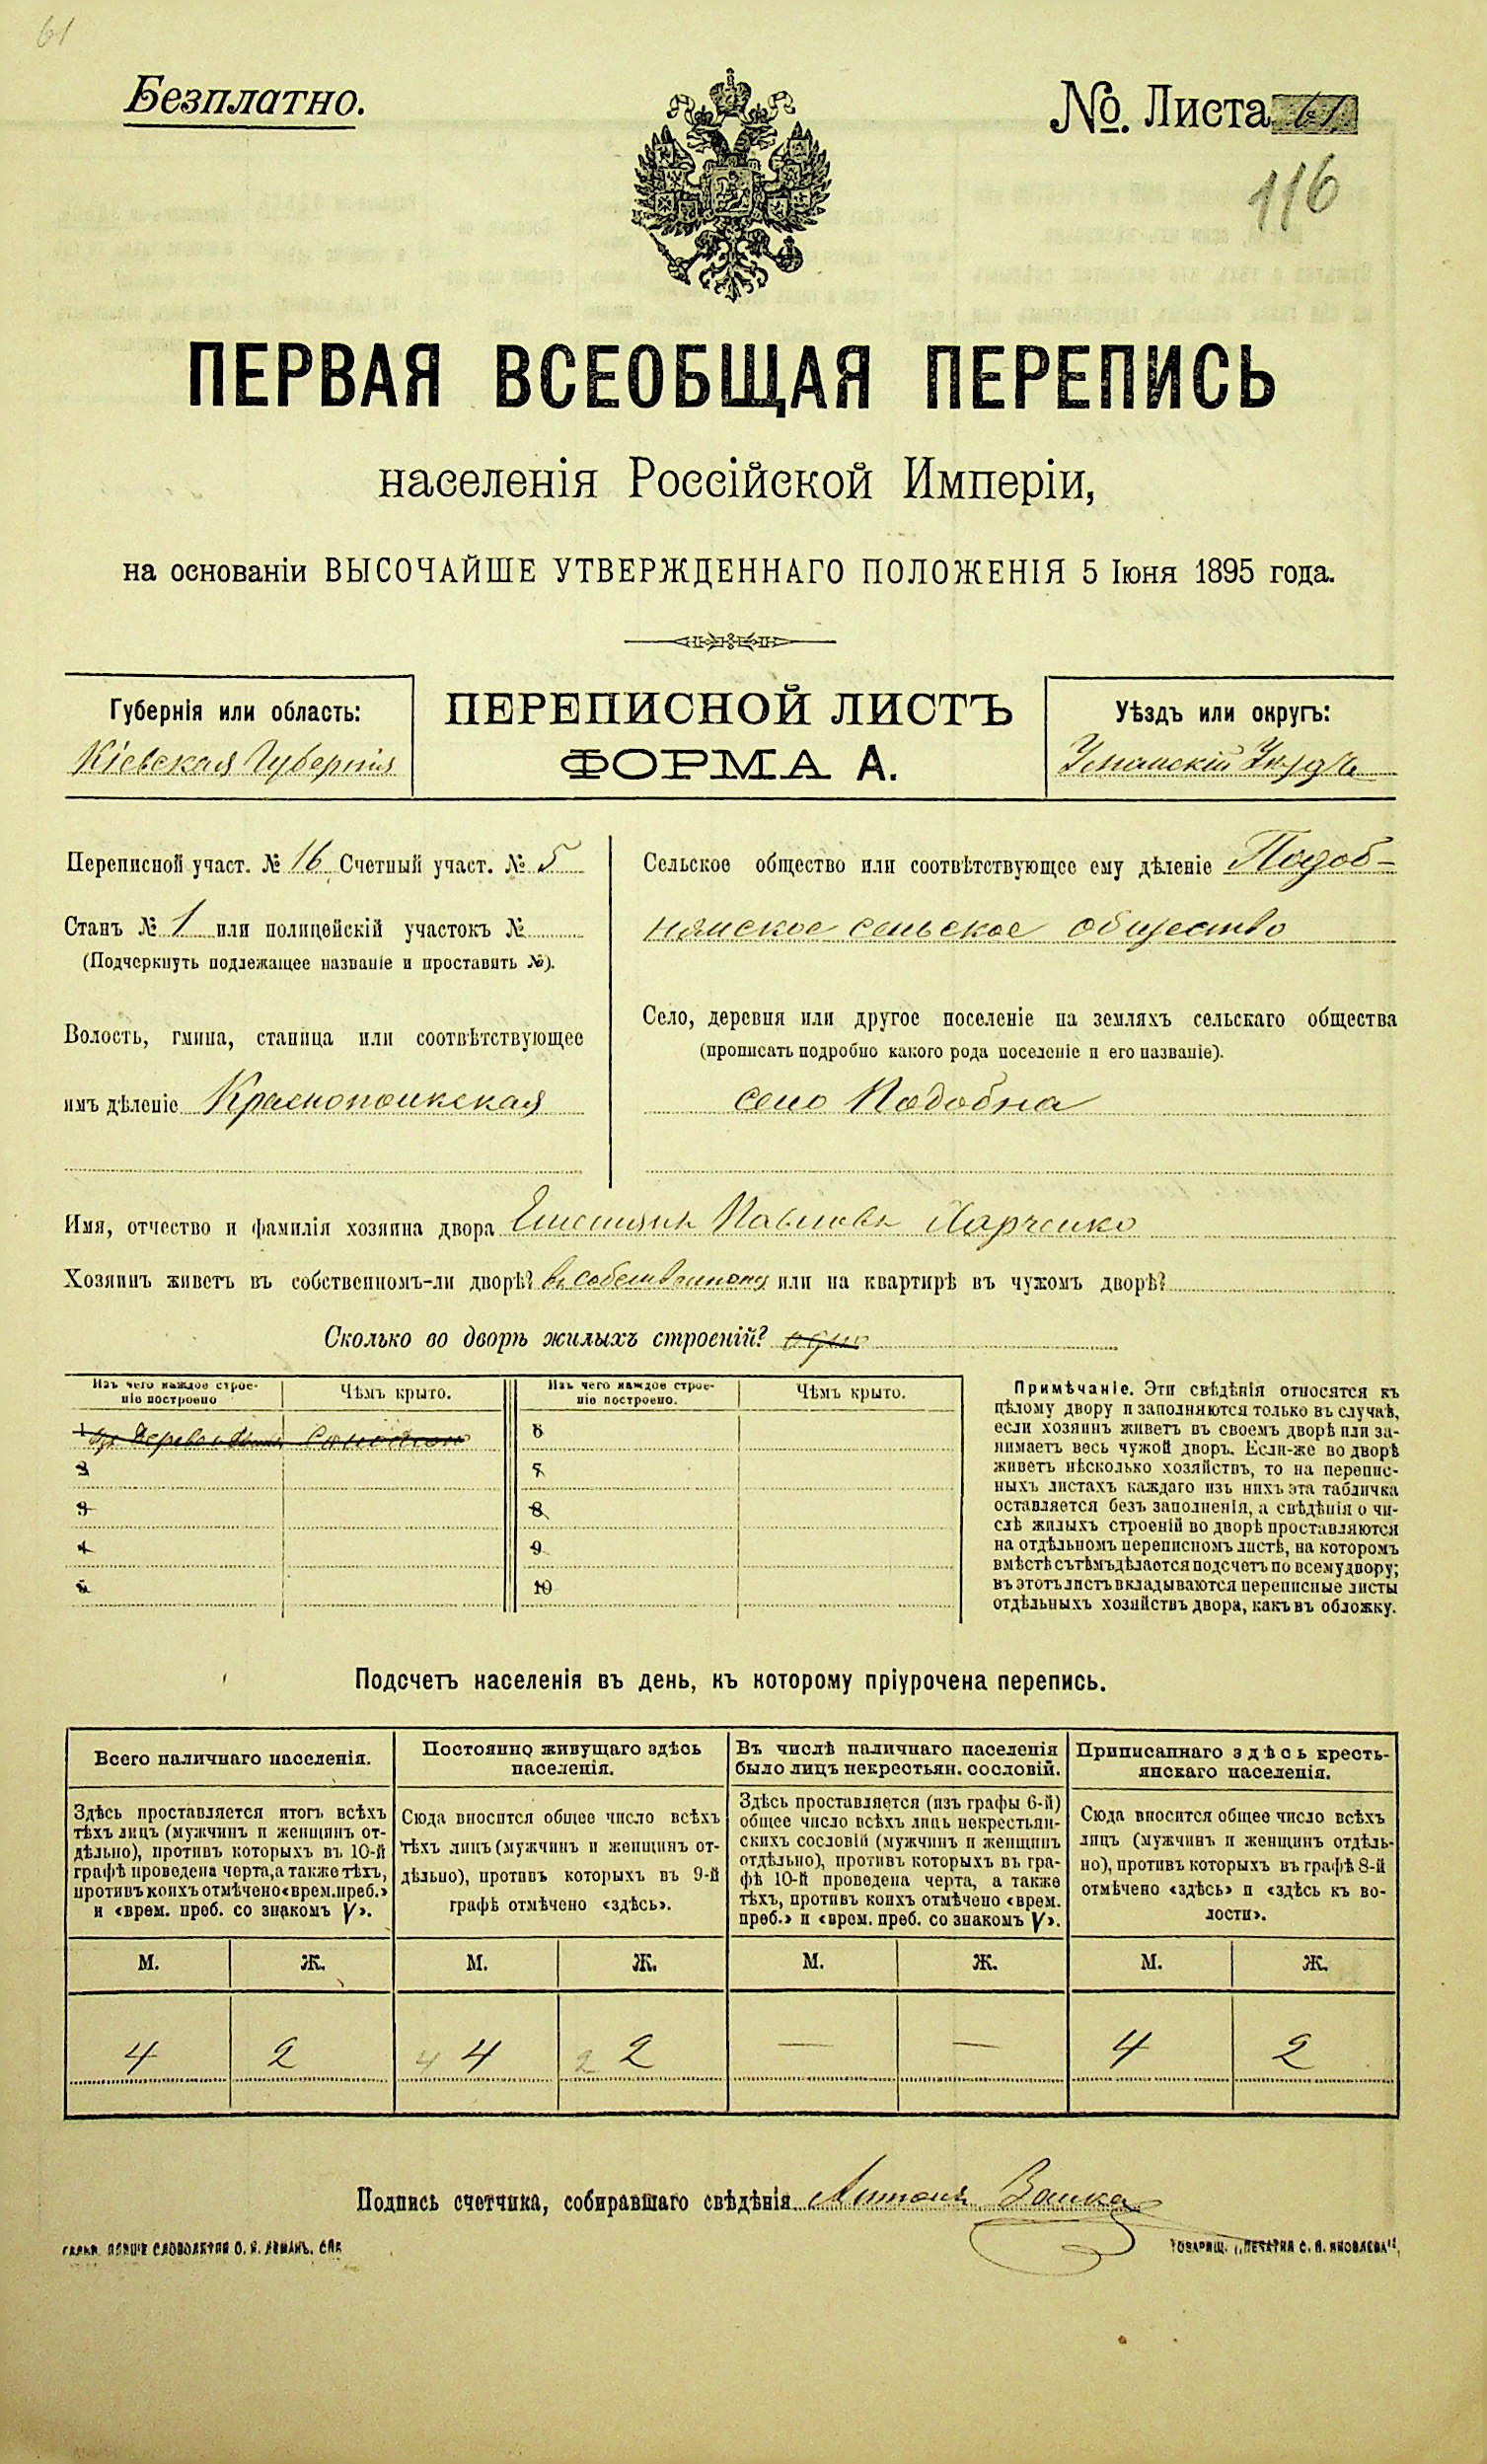 61
Безплатно.
№. Листа 61
116
ПЕРВАЯ ВСЕОБЩАЯ ПЕРЕПИСЬ
населенія Россійской Имперіи,
на основаніи ВЫСОЧАЙШЕ УТВЕРЖДЕННАГО ПОЛОЖЕНІЯ 5 Іюня 1895 года.
Губернія или область:
Кіевская Губернія
ПЕРЕПИСНОЙ ЛИСТЪ
ФОРМА А.
Уѣздъ или округъ:
Уманскій Уѣздъ
Переписной участ. № 16 Счетный участ. № 5
Станъ № 1 или полицейскій участокъ №
(Подчеркнуть подлежащее названіе и проставить №).
Волость, гмина, станица или соотвѣтствующее
имъ дѣленіе Краснопольская
Сельское общество или соотвѣтствующее ему дѣленіе Подоб-
нянское сельское общество
Село, деревня или другое поселеніе на земляхъ сельскаго общества
(прописать подробно какого рода поселеніе и его названіе).
село Подобна
Имя, отчество и фамилія хозяина двора Емельянъ Павловъ Харченко
Хозяинъ живетъ въ собственномъ-ли дворѣ? въ собственному или на квартирѣ въ чужомъ дворѣ?
Сколько во дворѣ жилыхъ строеній? одно
Изъ чего каждое строе-
ніе построено
Чѣмъ крыто.
Изъ чего каждое строе-
ніе построено.
Чѣмъ крыто.
1 изъ дерева и глины соломою
2
3
4
5
6
7
8
9
10
Примѣчаніе. Эти свѣдѣнія относятся къ
цѣлому двору и заполняются только въ случаѣ,
если хозяинъ живетъ въ своемъ дворѣ или за-
нимаетъ весь чужой дворъ. Если-же во дворѣ
живетъ нѣсколько хозяйствъ, то на перепис-
ныхъ листахъ каждаго изъ нихъ эта табличка
оставляется безъ заполненія, а свѣдѣнія о чи-
слѣ жилыхъ строеній во дворѣ проставляются
на отдѣльномъ переписномъ листѣ, на которомъ
вмѣстѣ съ тѣмъ дѣлается подсчетъ по всему двору;
въ этотъ листъ вкладываются переписные листы
отдѣльныхъ хозяйствъ двора, какъ въ обложку.
Подсчетъ населенія въ день, къ которому пріурочена перепись.
Всего наличнаго населенія.
Здѣсь проставляется итогъ всѣхъ
тѣхъ лицъ (мужчинъ и женщинъ от-
дѣльно), противъ которыхъ въ 10-й
графѣ проведена черта, а также тѣхъ,
противъ коихъ отмѣчено «врем. преб.»
и «врем. преб. со знакомъ V».
Постоянно живущаго здѣсь
населенія.
Сюда вносится общее число всѣхъ
тѣхъ лицъ (мужчинъ и женщинъ от-
дѣльно), противъ которыхъ въ 9-й
графѣ отмѣчено «здѣсь».
Въ числѣ наличнаго населенія
было лицъ некрестьян. сословій.
Здѣсь проставляется (изъ графы 6-й)
общее число всѣхъ лицъ некрестьян-
скихъ сословій (мужчинъ и женщинъ
отдѣльно), противъ которыхъ въ гра-
фѣ 10-й проведена черта, а также
тѣхъ, противъ коихъ отмѣчено «врем.
преб.» и «врем. преб. со знакомъ V».
Приписаннаго здѣсь кресть-
янскаго населенія.
Сюда вносится общее число всѣхъ
лицъ (мужчинъ и женщинъ отдѣль-
но), противъ которыхъ въ графѣ 8-й
отмѣчено «здѣсь» и «здѣсь къ во-
лости».
М. Ж. М. Ж. М. Ж. М. Ж.
4 2 4 4 2 2 — — 4 2
Подпись счетчика, собиравшаго свѣдѣнія Антонъ
ТОВАРИЩ. „ПЕЧАТНЯ С. П. ЯКОВЛЕВА",